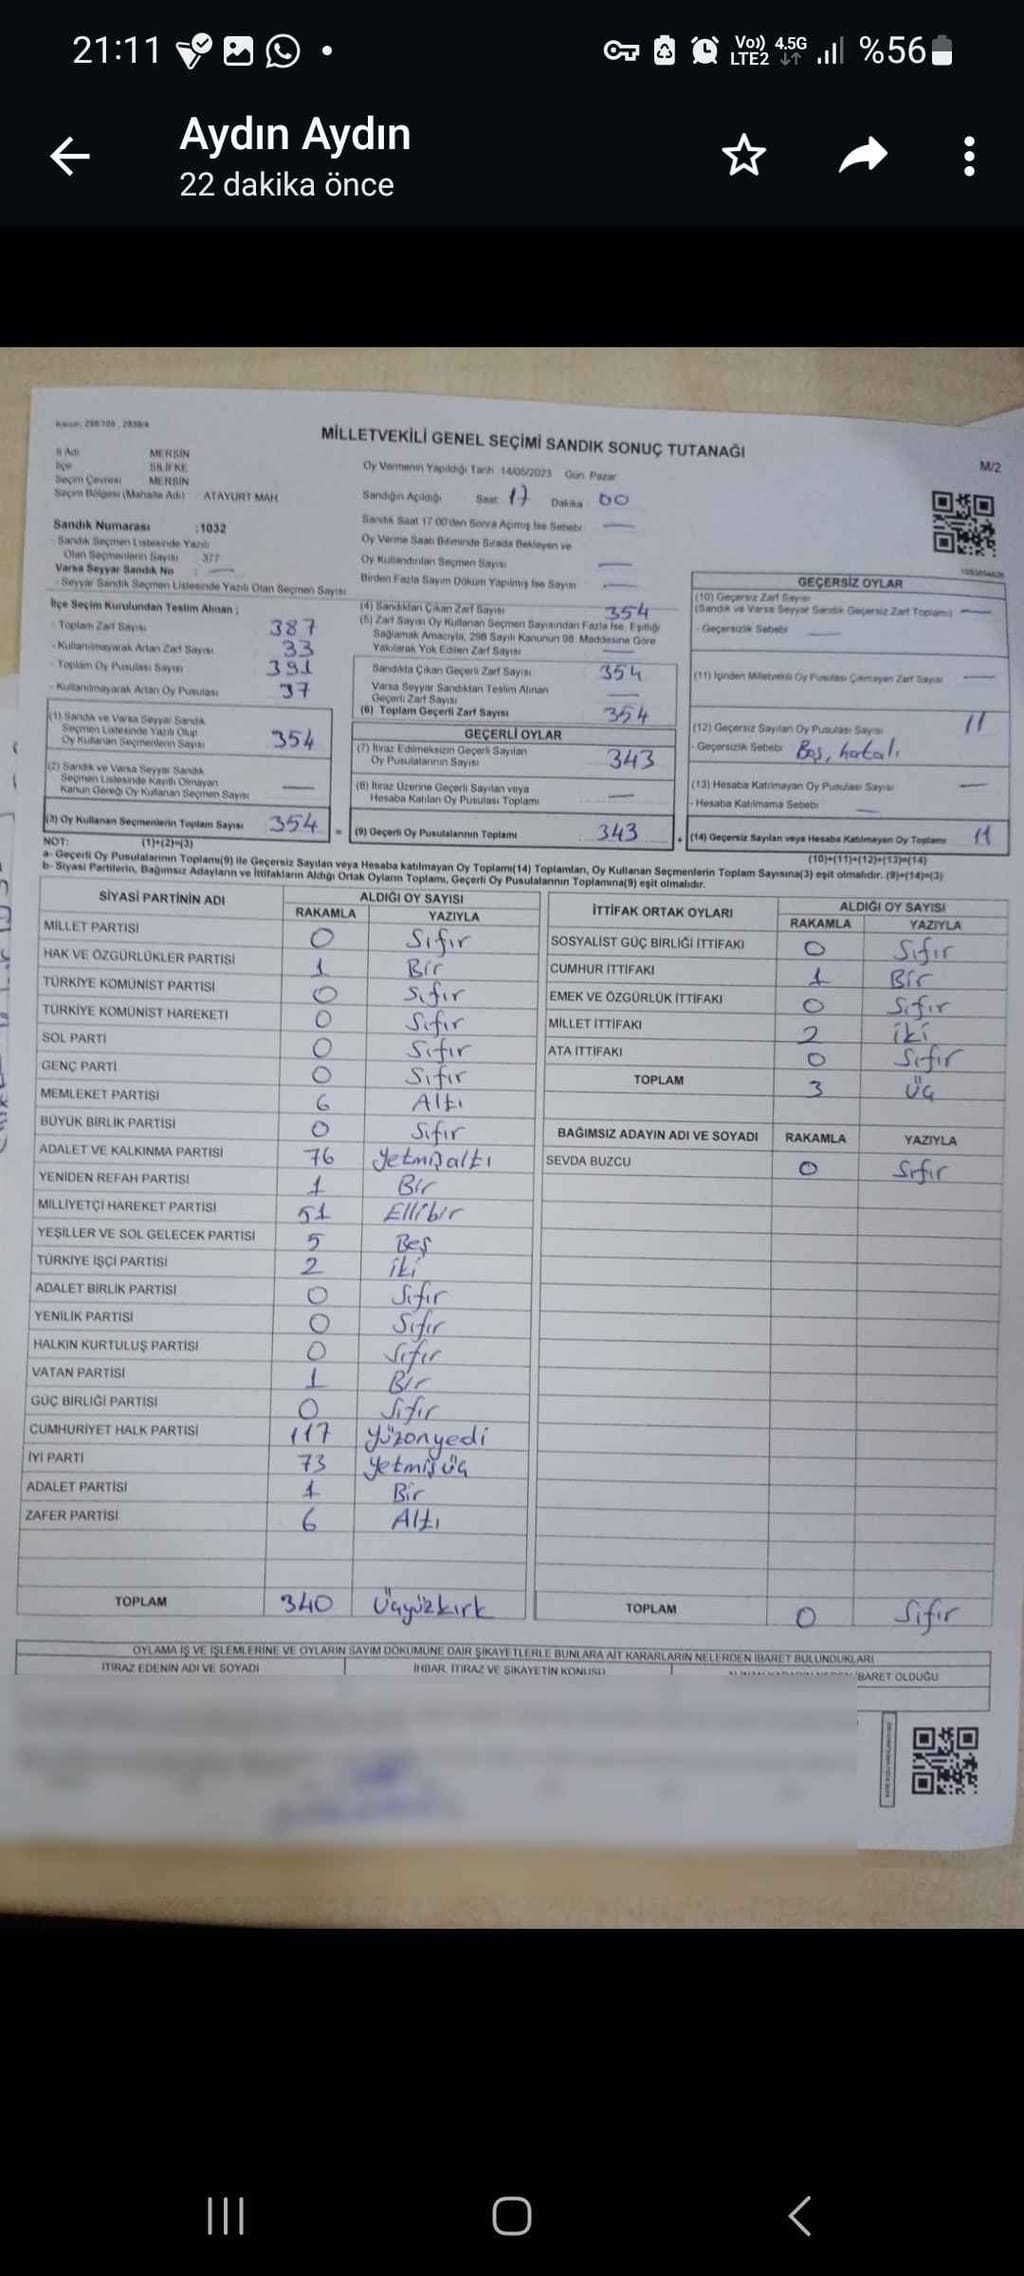 21:11
Vo)) LTE2 4.5G %56
Aydın Aydın
22 dakika önce
MİLLETVEKİLİ GENEL SEÇİMİ SANDIK SONUÇ TUTANAĞI
M/2
İl Adı MERSİN
İlçe SİLİFKE
Seçim Çevresi MERSİN
Seçim Bölgesi (Mahalle Adı) ATAYURT MAH
Oy Vermenin Yapıldığı Tarih 14/05/2023 Gün Pazar
Sandığın Açıldığı Saat 17 Dakika 00
Sandık Saat 17 00'den Sonra Açımış İse Sebebi —
Oy Verme Saati Bitiminde Sırada Bekleyen ve
Oy Kullandırılan Seçmen Sayısı —
Birden Fazla Sayım Döküm Yapılmış İse Sayısı —
Sandık Numarası :1032
- Sandık Seçmen Listesinde Yazılı
Olan Seçmenlerin Sayısı 377
Varsa Seyyar Sandık No : —
- Seyyar Sandık Seçmen Listesinde Yazılı Olan Seçmen Sayısı
İlçe Seçim Kurulundan Teslim Alınan :
- Toplam Zarf Sayısı 387
- Kullanılmayarak Artan Zarf Sayısı 33
- Toplam Oy Pusulası Sayısı 391
- Kullanılmayarak Artan Oy Pusulası 37
(1) Sandık ve Varsa Seyyar Sandık
Seçmen Listesinde Yazılı Olup
Oy Kullanan Seçmenlerin Sayısı 354
(2) Sandık ve Varsa Seyyar Sandık
Seçmen Listesinde Kayıtlı Olmayan
Kanun Gereği Oy Kullanan Seçmen Sayısı —
(3) Oy Kullanan Seçmenlerin Toplam Sayısı 354
(4) Sandıktan Çıkan Zarf Sayısı 354
(5) Zarf Sayısı Oy Kullanan Seçmen Sayısından Fazla İse, Eşitliği
Sağlamak Amacıyla, 298 Sayılı Kanunun 98. Maddesine Göre
Yakılarak Yok Edilen Zarf Sayısı —
Sandıkta Çıkan Geçerli Zarf Sayısı 354
Varsa Seyyar Sandıktan Teslim Alınan
Geçerli Zarf Sayısı —
(6) Toplam Geçerli Zarf Sayısı 354
GEÇERLİ OYLAR
(7) İtiraz Edilmeksizin Geçerli Sayılan
Oy Pusulalarının Sayısı 343
(8) İtiraz Üzerine Geçerli Sayılan veya
Hesaba Katılan Oy Pusulası Toplamı —
= (9) Geçerli Oy Pusulalarının Toplamı 343
GEÇERSİZ OYLAR
(10) Geçersiz Zarf Sayısı
(Sandık ve Varsa Seyyar Sandık Geçersiz Zarf Toplamı) —
- Geçersizlik Sebebi —
(11) İçinden Milletvekili Oy Pusulası Çıkmayan Zarf Sayısı —
(12) Geçersiz Sayılan Oy Pusulası Sayısı 11
- Geçersizlik Sebebi Boş, hatalı
(13) Hesaba Katılmayan Oy Pusulası Sayısı —
- Hesaba Katılmama Sebebi —
+ (14) Geçersiz Sayılan veya Hesaba Katılmayan Oy Toplamı 11
NOT: (1)+(2)=(3) (10)+(11)+(12)+(13)=(14)
a- Geçerli Oy Pusulalarının Toplamı(9) ile Geçersiz Sayılan veya Hesaba katılmayan Oy Toplamı(14) Toplamları, Oy Kullanan Seçmenlerin Toplam Sayısına(3) eşit olmalıdır. (9)+(14)=(3)
b- Siyasi Partilerin, Bağımsız Adayların ve İttifakların Aldığı Ortak Oyların Toplamı, Geçerli Oy Pusulalarının Toplamına(9) eşit olmalıdır.
SİYASİ PARTİNİN ADI ALDIĞI OY SAYISI
RAKAMLA YAZIYLA
MİLLET PARTİSİ 0 Sıfır
HAK VE ÖZGÜRLÜKLER PARTİSİ 1 Bir
TÜRKİYE KOMÜNİST PARTİSİ 0 Sıfır
TÜRKİYE KOMÜNİST HAREKETİ 0 Sıfır
SOL PARTİ 0 Sıfır
GENÇ PARTİ 0 Sıfır
MEMLEKET PARTİSİ 6 Altı
BÜYÜK BİRLİK PARTİSİ 0 Sıfır
ADALET VE KALKINMA PARTİSİ 76 Yetmişaltı
YENİDEN REFAH PARTİSİ 1 Bir
MİLLİYETÇİ HAREKET PARTİSİ 51 Ellibir
YEŞİLLER VE SOL GELECEK PARTİSİ 5 Beş
TÜRKİYE İŞÇİ PARTİSİ 2 iki
ADALET BİRLİK PARTİSİ 0 Sıfır
YENİLİK PARTİSİ 0 Sıfır
HALKIN KURTULUŞ PARTİSİ 0 Sıfır
VATAN PARTİSİ 1 Bir
GÜÇ BİRLİĞİ PARTİSİ 0 Sıfır
CUMHURİYET HALK PARTİSİ 117 Yüzonyedi
İYİ PARTİ 73 Yetmişüç
ADALET PARTİSİ 1 Bir
ZAFER PARTİSİ 6 Altı
TOPLAM 340 Üçyüzkırk
İTTİFAK ORTAK OYLARI ALDIĞI OY SAYISI
RAKAMLA YAZIYLA
SOSYALİST GÜÇ BİRLİĞİ İTTİFAKI 0 Sıfır
CUMHUR İTTİFAKI 1 Bir
EMEK VE ÖZGÜRLÜK İTTİFAKI 0 Sıfır
MİLLET İTTİFAKI 2 iki
ATA İTTİFAKI 0 Sıfır
TOPLAM 3 Üç
BAĞIMSIZ ADAYIN ADI VE SOYADI RAKAMLA YAZIYLA
SEVDA BUZCU 0 Sıfır
TOPLAM 0 Sıfır
OYLAMA İŞ VE İŞLEMLERİNE VE OYLARIN SAYIM DÖKÜMÜNE DAİR ŞİKAYETLERLE BUNLARA AİT KARARLARIN NELERDEN İBARET BULUNDUKLARI
İTİRAZ EDENİN ADI VE SOYADI İHBAR, İTİRAZ VE ŞİKAYETİN KONUSU BARET OLDUĞU